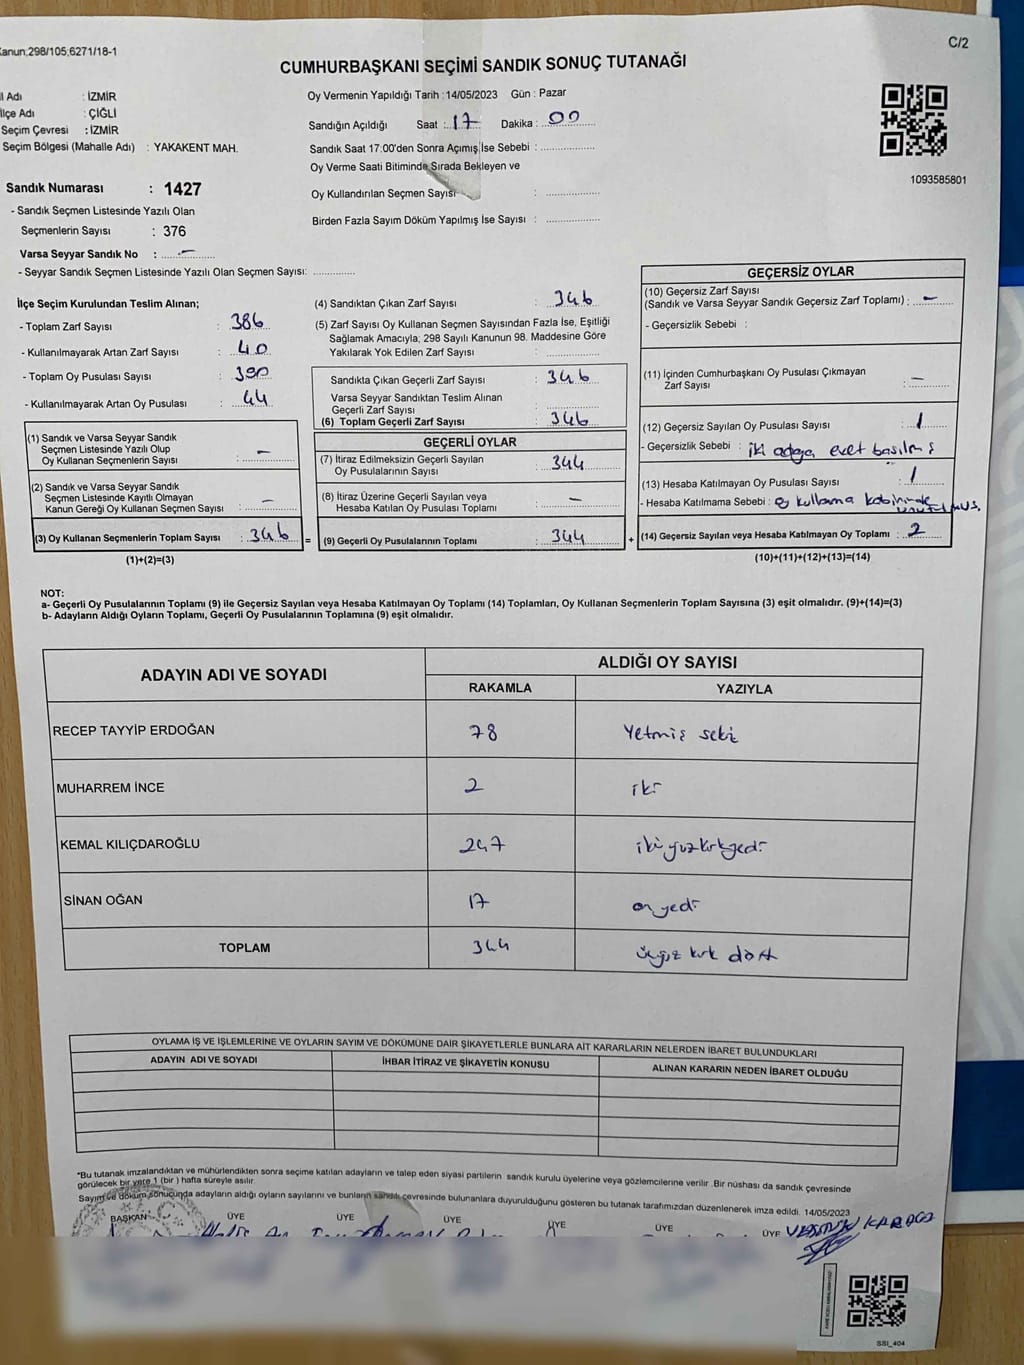 Kanun:298/105;6271/18-1
C/2
CUMHURBAŞKANI SEÇİMİ SANDIK SONUÇ TUTANAĞI
İl Adı : İZMİR
İlçe Adı : ÇİĞLİ
Seçim Çevresi : İZMİR
Seçim Bölgesi (Mahalle Adı) : YAKAKENT MAH.
Sandık Numarası : 1427
- Sandık Seçmen Listesinde Yazılı Olan
Seçmenlerin Sayısı : 376
Varsa Seyyar Sandık No : -
- Seyyar Sandık Seçmen Listesinde Yazılı Olan Seçmen Sayısı: ..............
Oy Vermenin Yapıldığı Tarih :14/05/2023 Gün : Pazar
Sandığın Açıldığı Saat : 17 Dakika : 00
Sandık Saat 17.00'den Sonra Açımış İse Sebebi : ..................
Oy Verme Saati Bitiminde Sırada Bekleyen ve
Oy Kullandırılan Seçmen Sayısı : ..................
Birden Fazla Sayım Döküm Yapılmış İse Sayısı : ..................
1093585801
İlçe Seçim Kurulundan Teslim Alınan;
- Toplam Zarf Sayısı : 386
- Kullanılmayarak Artan Zarf Sayısı : 40
- Toplam Oy Pusulası Sayısı : 390
- Kullanılmayarak Artan Oy Pusulası : 44
(1) Sandık ve Varsa Seyyar Sandık
Seçmen Listesinde Yazılı Olup
Oy Kullanan Seçmenlerin Sayısı : -
(2) Sandık ve Varsa Seyyar Sandık
Seçmen Listesinde Kayıtlı Olmayan
Kanun Gereği Oy Kullanan Seçmen Sayısı : -
(3) Oy Kullanan Seçmenlerin Toplam Sayısı : 346 =
(1)+(2)=(3)
(4) Sandıktan Çıkan Zarf Sayısı : 346
(5) Zarf Sayısı Oy Kullanan Seçmen Sayısından Fazla İse, Eşitliği
Sağlamak Amacıyla; 298 Sayılı Kanunun 98. Maddesine Göre
Yakılarak Yok Edilen Zarf Sayısı : ..................
Sandıkta Çıkan Geçerli Zarf Sayısı : 346
Varsa Seyyar Sandıktan Teslim Alınan
Geçerli Zarf Sayısı : ..................
(6) Toplam Geçerli Zarf Sayısı : 346
GEÇERLİ OYLAR
(7) İtiraz Edilmeksizin Geçerli Sayılan
Oy Pusulalarının Sayısı : 344
(8) İtiraz Üzerine Geçerli Sayılan veya
Hesaba Katılan Oy Pusulası Toplamı : -
(9) Geçerli Oy Pusulalarının Toplamı : 344 +
GEÇERSİZ OYLAR
(10) Geçersiz Zarf Sayısı
(Sandık ve Varsa Seyyar Sandık Geçersiz Zarf Toplamı) : -
- Geçersizlik Sebebi :
(11) İçinden Cumhurbaşkanı Oy Pusulası Çıkmayan
Zarf Sayısı : -
(12) Geçersiz Sayılan Oy Pusulası Sayısı : 1
- Geçersizlik Sebebi : iki adaya evet basılmış
(13) Hesaba Katılmayan Oy Pusulası Sayısı : 1
- Hesaba Katılmama Sebebi : oy kullanma kabininde
unutulmuş.
(14) Geçersiz Sayılan veya Hesaba Katılmayan Oy Toplamı : 2
(10)+(11)+(12)+(13)=(14)
NOT:
a- Geçerli Oy Pusulalarının Toplamı (9) ile Geçersiz Sayılan veya Hesaba Katılmayan Oy Toplamı (14) Toplamları, Oy Kullanan Seçmenlerin Toplam Sayısına (3) eşit olmalıdır. (9)+(14)=(3)
b- Adayların Aldığı Oyların Toplamı, Geçerli Oy Pusulalarının Toplamına (9) eşit olmalıdır.
ADAYIN ADI VE SOYADI
ALDIĞI OY SAYISI
RAKAMLA YAZIYLA
RECEP TAYYİP ERDOĞAN 78 Yetmiş sekiz
MUHARREM İNCE 2 iki
KEMAL KILIÇDAROĞLU 247 ikiyüzkırkyedi
SİNAN OĞAN 17 onyedi
TOPLAM 344 üçyüz kırk dört
OYLAMA İŞ VE İŞLEMLERİNE VE OYLARIN SAYIM VE DÖKÜMÜNE DAİR ŞİKAYETLERLE BUNLARA AİT KARARLARIN NELERDEN İBARET BULUNDUKLARI
ADAYIN ADI VE SOYADI İHBAR İTİRAZ VE ŞİKAYETİN KONUSU ALINAN KARARIN NEDEN İBARET OLDUĞU
*Bu tutanak imzalandıktan ve mühürlendikten sonra seçime katılan adayların ve talep eden siyasi partilerin sandık kurulu üyelerine veya gözlemcilerine verilir .Bir nüshası da sandık çevresinde
görülecek bir yere 1 (bir ) hafta süreyle asılır.
Sayım ve döküm sonucunda adayların aldığı oyların sayılarını ve bunların sandık çevresinde bulunanlara duyurulduğunu gösteren bu tutanak tarafımızdan düzenlenerek imza edildi. 14/05/2023
BAŞKAN ÜYE ÜYE ÜYE ÜYE ÜYE ÜYE
SSI_404